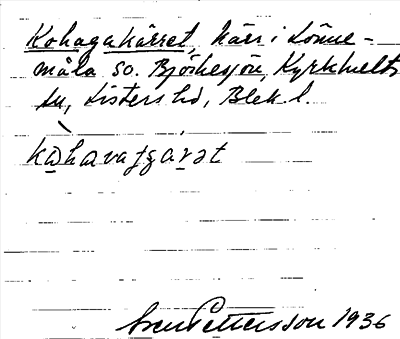 Kohagakärret, kärr i Lönne-
måla so. Björkesjön, Kyrkhults
sn, Listers hd, Blek. l.
Pettersson 1936